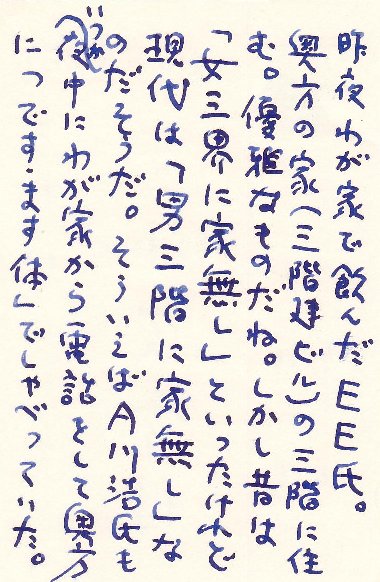 昨夜わが家で飲んだEE氏。
奥方の家(三階建ビル)の三階に住
む。優雅なものだね。しかし昔は
「女三界に家無し」といったけれど
現代は「男三階に家無し」な
のだそうだ。そういえばA川浩氏も
(いつかの)夜中にわが家から電話をして奥方
に「ですます体」でしゃべっていた。